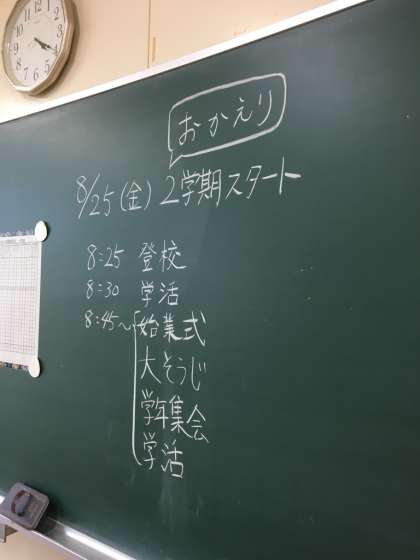 おかえり
8/25(金) 2学期スタート
8:25 登校
8:30 学活
8:45~ 始業式
大そうじ
学年集会
学活